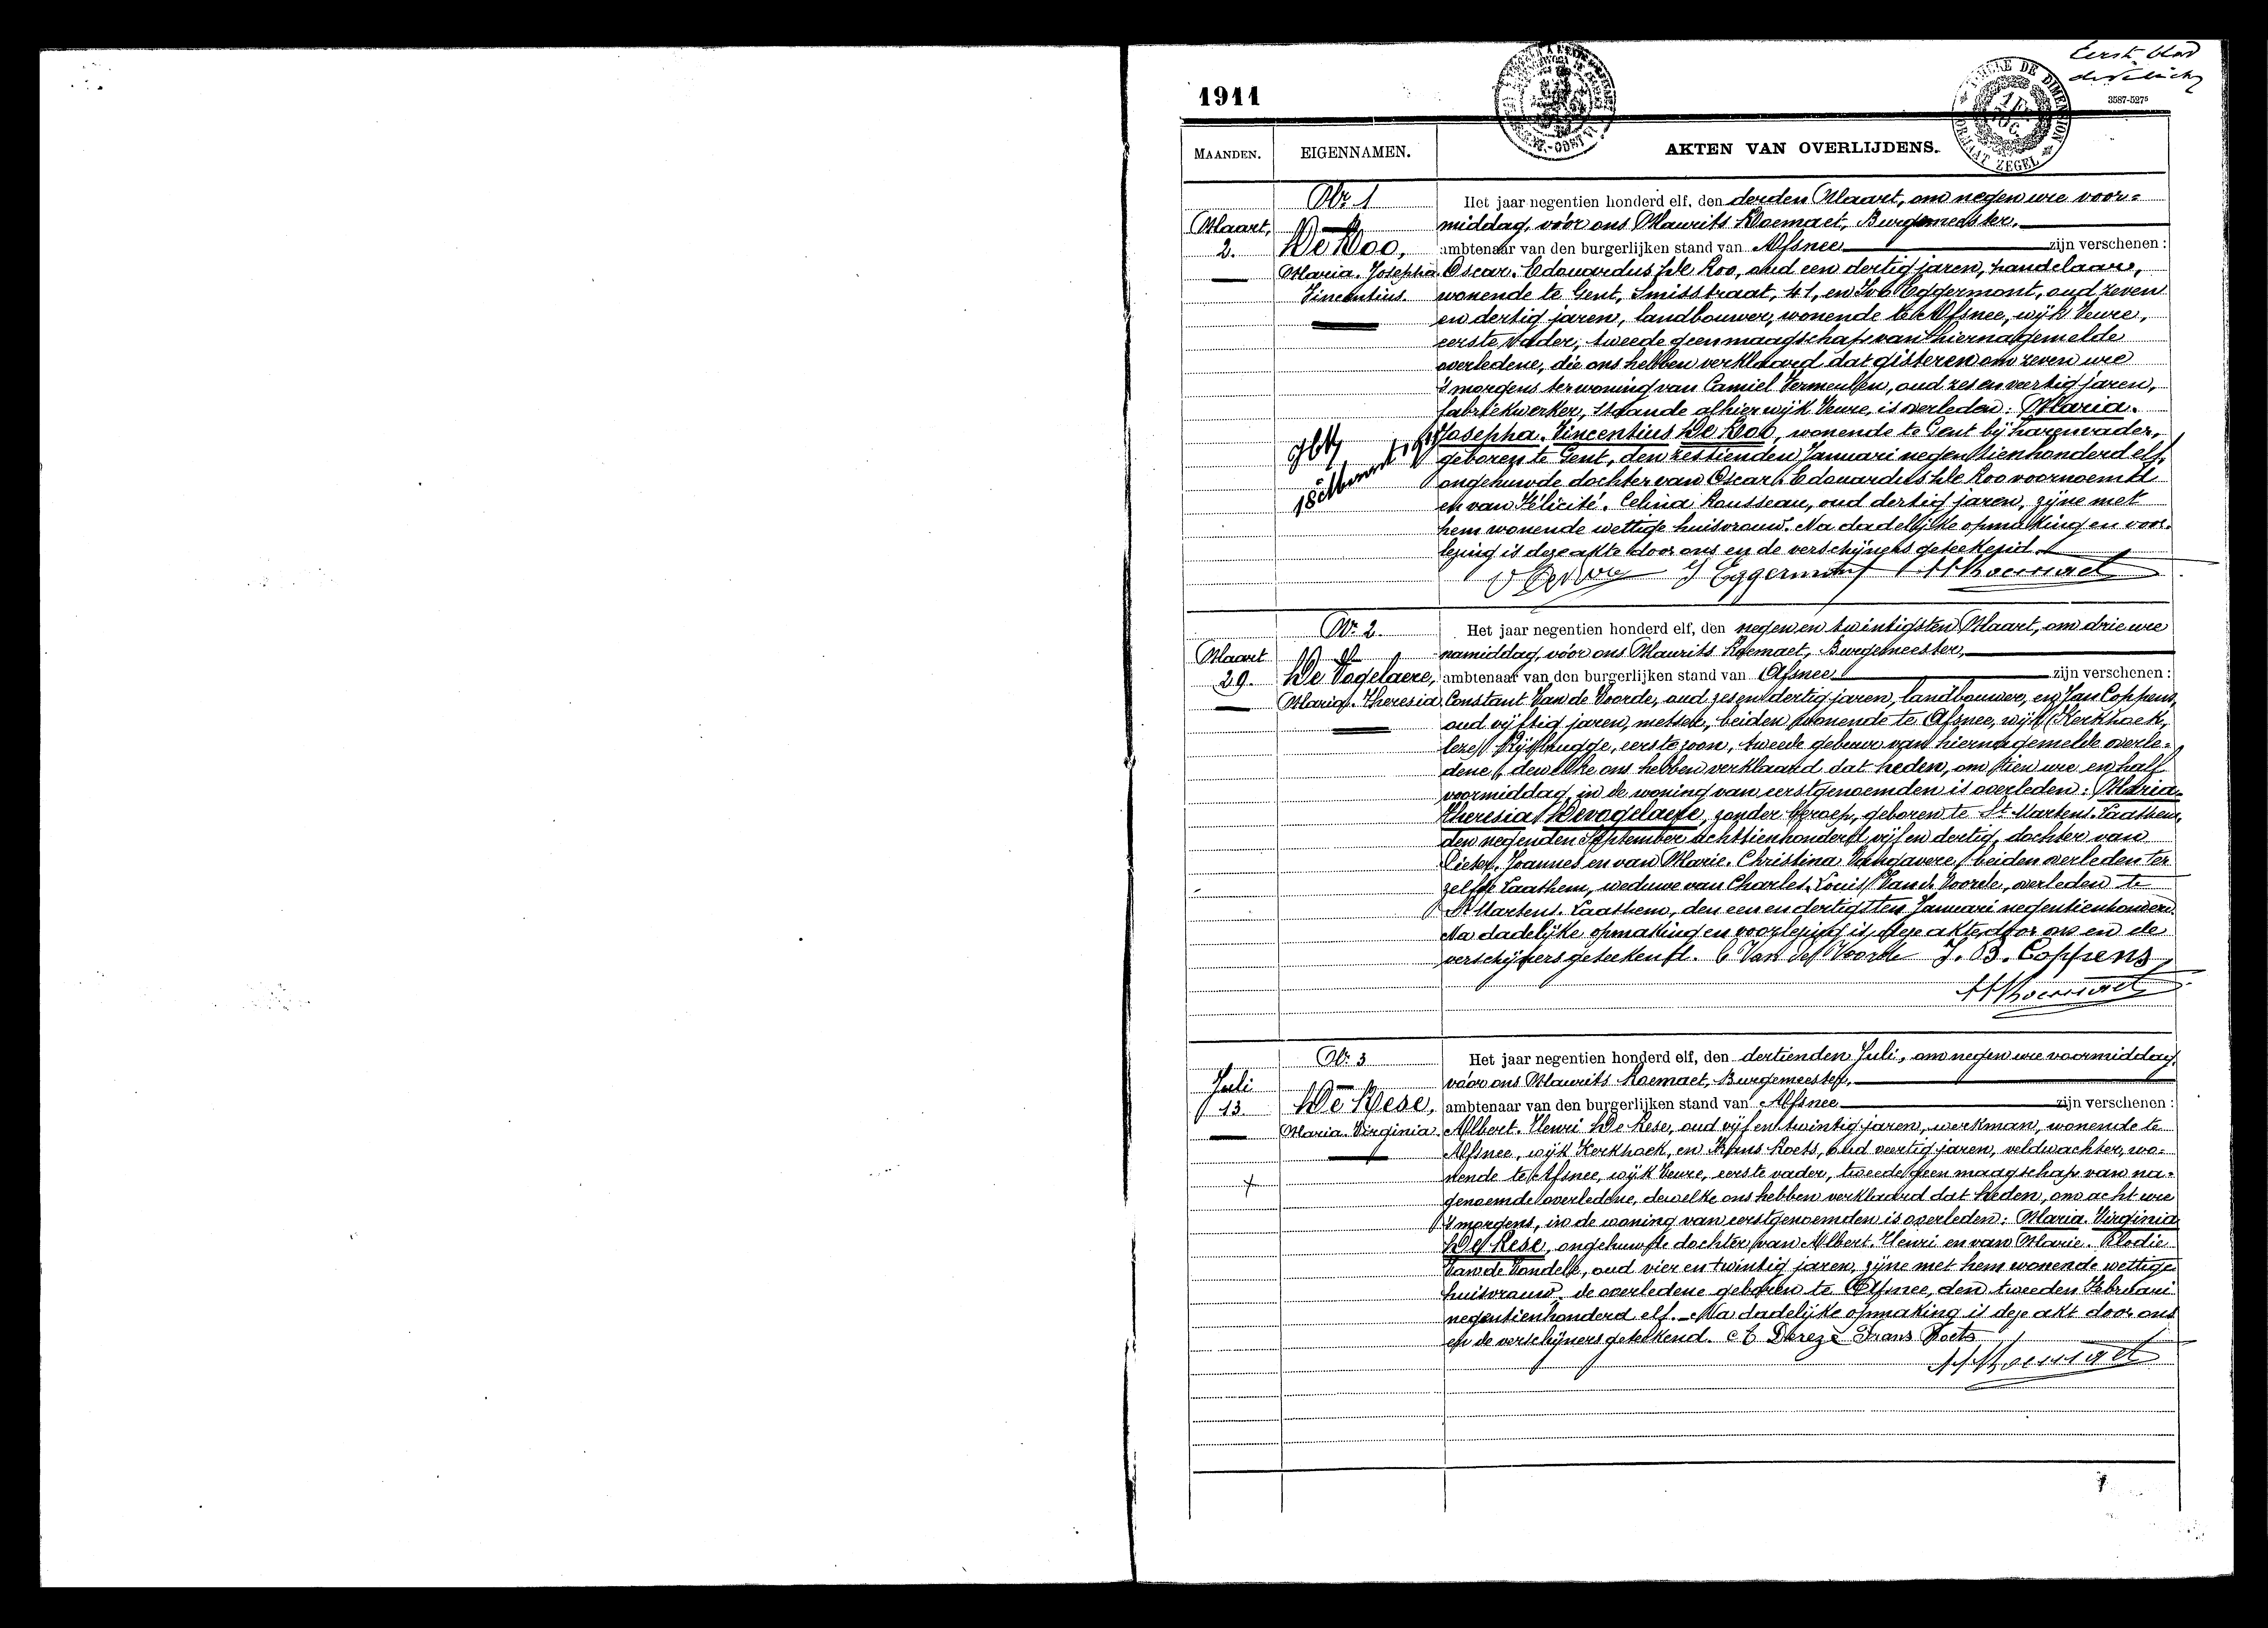 Eerste blad
1911
3587-5275
TIMBRE DE DIMENSION
1 FR.
FORMAAT ZEGEL
MAANDEN.
EIGENNAMEN.
AKTEN VAN OVERLIJDENS.
Nr. 1
Maart,
2.
De Roo,
Maria. Josepha
Vincentius.
Het jaar negentien honderd elf, den derden Maart, om negen ure voor-
middag, vóór ons Maurits Roemaet, Burgemeester,
ambtenaar van den burgerlijken stand van Afsnee zijn verschenen :
Oscar. Edouardus De Roo, oud een dertig jaren, handelaar,
wonende te Gent, Smisstraat, 41, en Ivo Eggermont, oud zeven
en dertig jaren, landbouwer, wonende te Afsnee, wijk Veure,
eerste vader, tweede geen maagschap van hiernagemelde
overledene, die ons hebben verklaard dat gisteren om zeven ure
's morgens ter woning van Camiel Vermeulen, oud zes en veertig jaren,
fabriekwerker, staande alhier wijk Veure, is overleden: Maria.
Josepha. Vincentius De Roo, wonende te Gent bij haren vader,
geboren te Gent, den zestienden Januari negentienhonderd elf,
ongehuwde dochter van Oscar. Edouardus De Roo voornoemd
en van Félicité. Celina Rousseau, oud dertig jaren, zijne met
hem wonende wettige huisvrouw. Na dadelijke opmaking en voor-
lezing is deze akte door ons en de verschijners geteekend.
O De Roo I Eggermont M Roemaet
Nr. 2.
Maart
29.
De Vogelaere,
Maria. Theresia
Het jaar negentien honderd elf, den negen en twintigsten Maart, om drie ure
namiddag, vóór ons Maurits Roemaet, Burgemeester,
ambtenaar van den burgerlijken stand van Afsnee zijn verschenen :
Constant Van de Voorde, oud zes en dertig jaren, landbouwer, en Jan Coppens,
oud vijftig jaren, metser, beiden wonende te Afsnee, wijk Kerkhoek,
eerste zoon, tweede gebuur van hiernagemelde overle-
dene, dewelke ons hebben verklaard dat heden, om tien ure en half
voormiddag, in de woning van eerstgenoemden is overleden: Maria.
Theresia Devogelaere, zonder beroep, geboren te St. Martens. Laathem,
den negenden September achttienhonderd vijf en dertig, dochter van
Pieter. Joannes en van Marie. Christina Vangavere, beiden overleden ter
zelfde Laathem, weduwe van Charles. Louis Van de Voorde, overleden te
St Martens. Laathem, den een en dertigsten Januari negentienhonderd.
Na dadelijke opmaking en voorlezing is deze akte door ons en de
verschijners geteekend. C Van de Voorde J. B. Coppens
M Roemaet
Nr. 3
Juli
13.
De Rese,
Maria. Virginia.
Het jaar negentien honderd elf, den dertienden Juli, om negen ure voormiddag,
vóór ons Maurits Roemaet, Burgemeester,
ambtenaar van den burgerlijken stand van Afsnee zijn verschenen :
Albert. Henri De Rese, oud vijf en twintig jaren, werkman, wonende te
Afsnee, wijk Kerkhoek, en Frans Roets, oud veertig jaren, veldwachter, wo-
nende te Afsnee, wijk Veure, eerste vader, tweede geen maagschap van na-
genoemde overledene, dewelke ons hebben verklaard dat heden, om acht ure
's morgens, in de woning van eerstgenoemden is overleden: Maria. Virginia
De Rese, ongehuwde dochter van Albert. Henri en van Marie. Elodie
Van de Vondele, oud vier en twintig jaren, zijne met hem wonende wettige
huisvrouw, de overledene geboren te Afsnee, den tweeden Februari
negentienhonderd elf. Na dadelijke opmaking is deze akt door ons
en de verschijners geteekend. A Dereze Frans Roets
M Roemaet